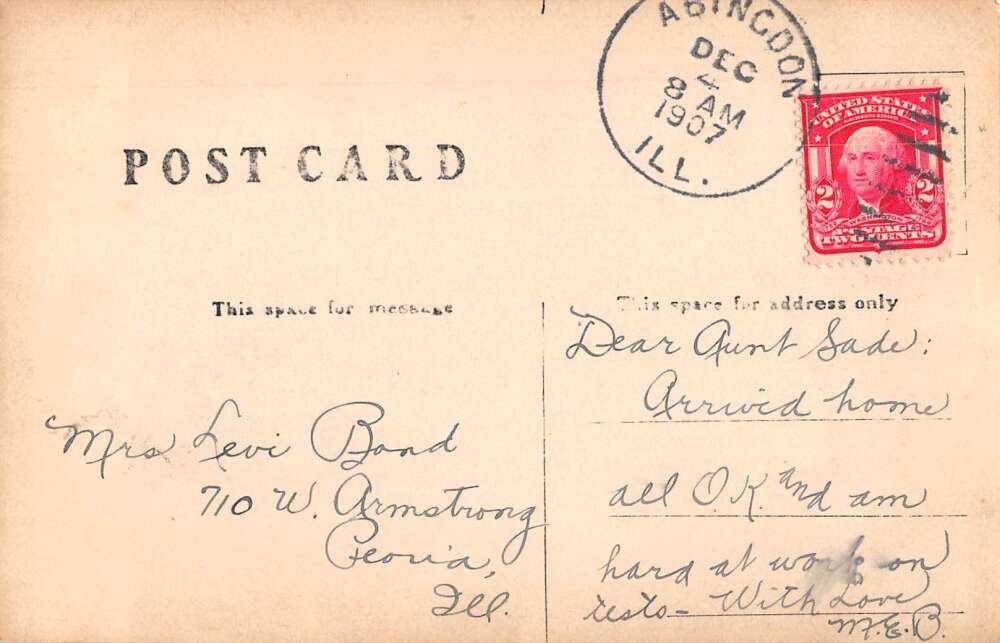 POST CARD
ABINGDON
DEC
4
8 AM
1907
ILL.
UNITED STATES
OF AMERICA
2 2
WASHINGTON
POSTAGE
TWO CENTS
This space for message
Mrs Levi Bond
710 W. Armstrong
Peoria,
Ill.
This space for address only
Dear Aunt Sade:
Arrived home
all O.K. and am
hard at work on
tests- With Love
M.E.B.